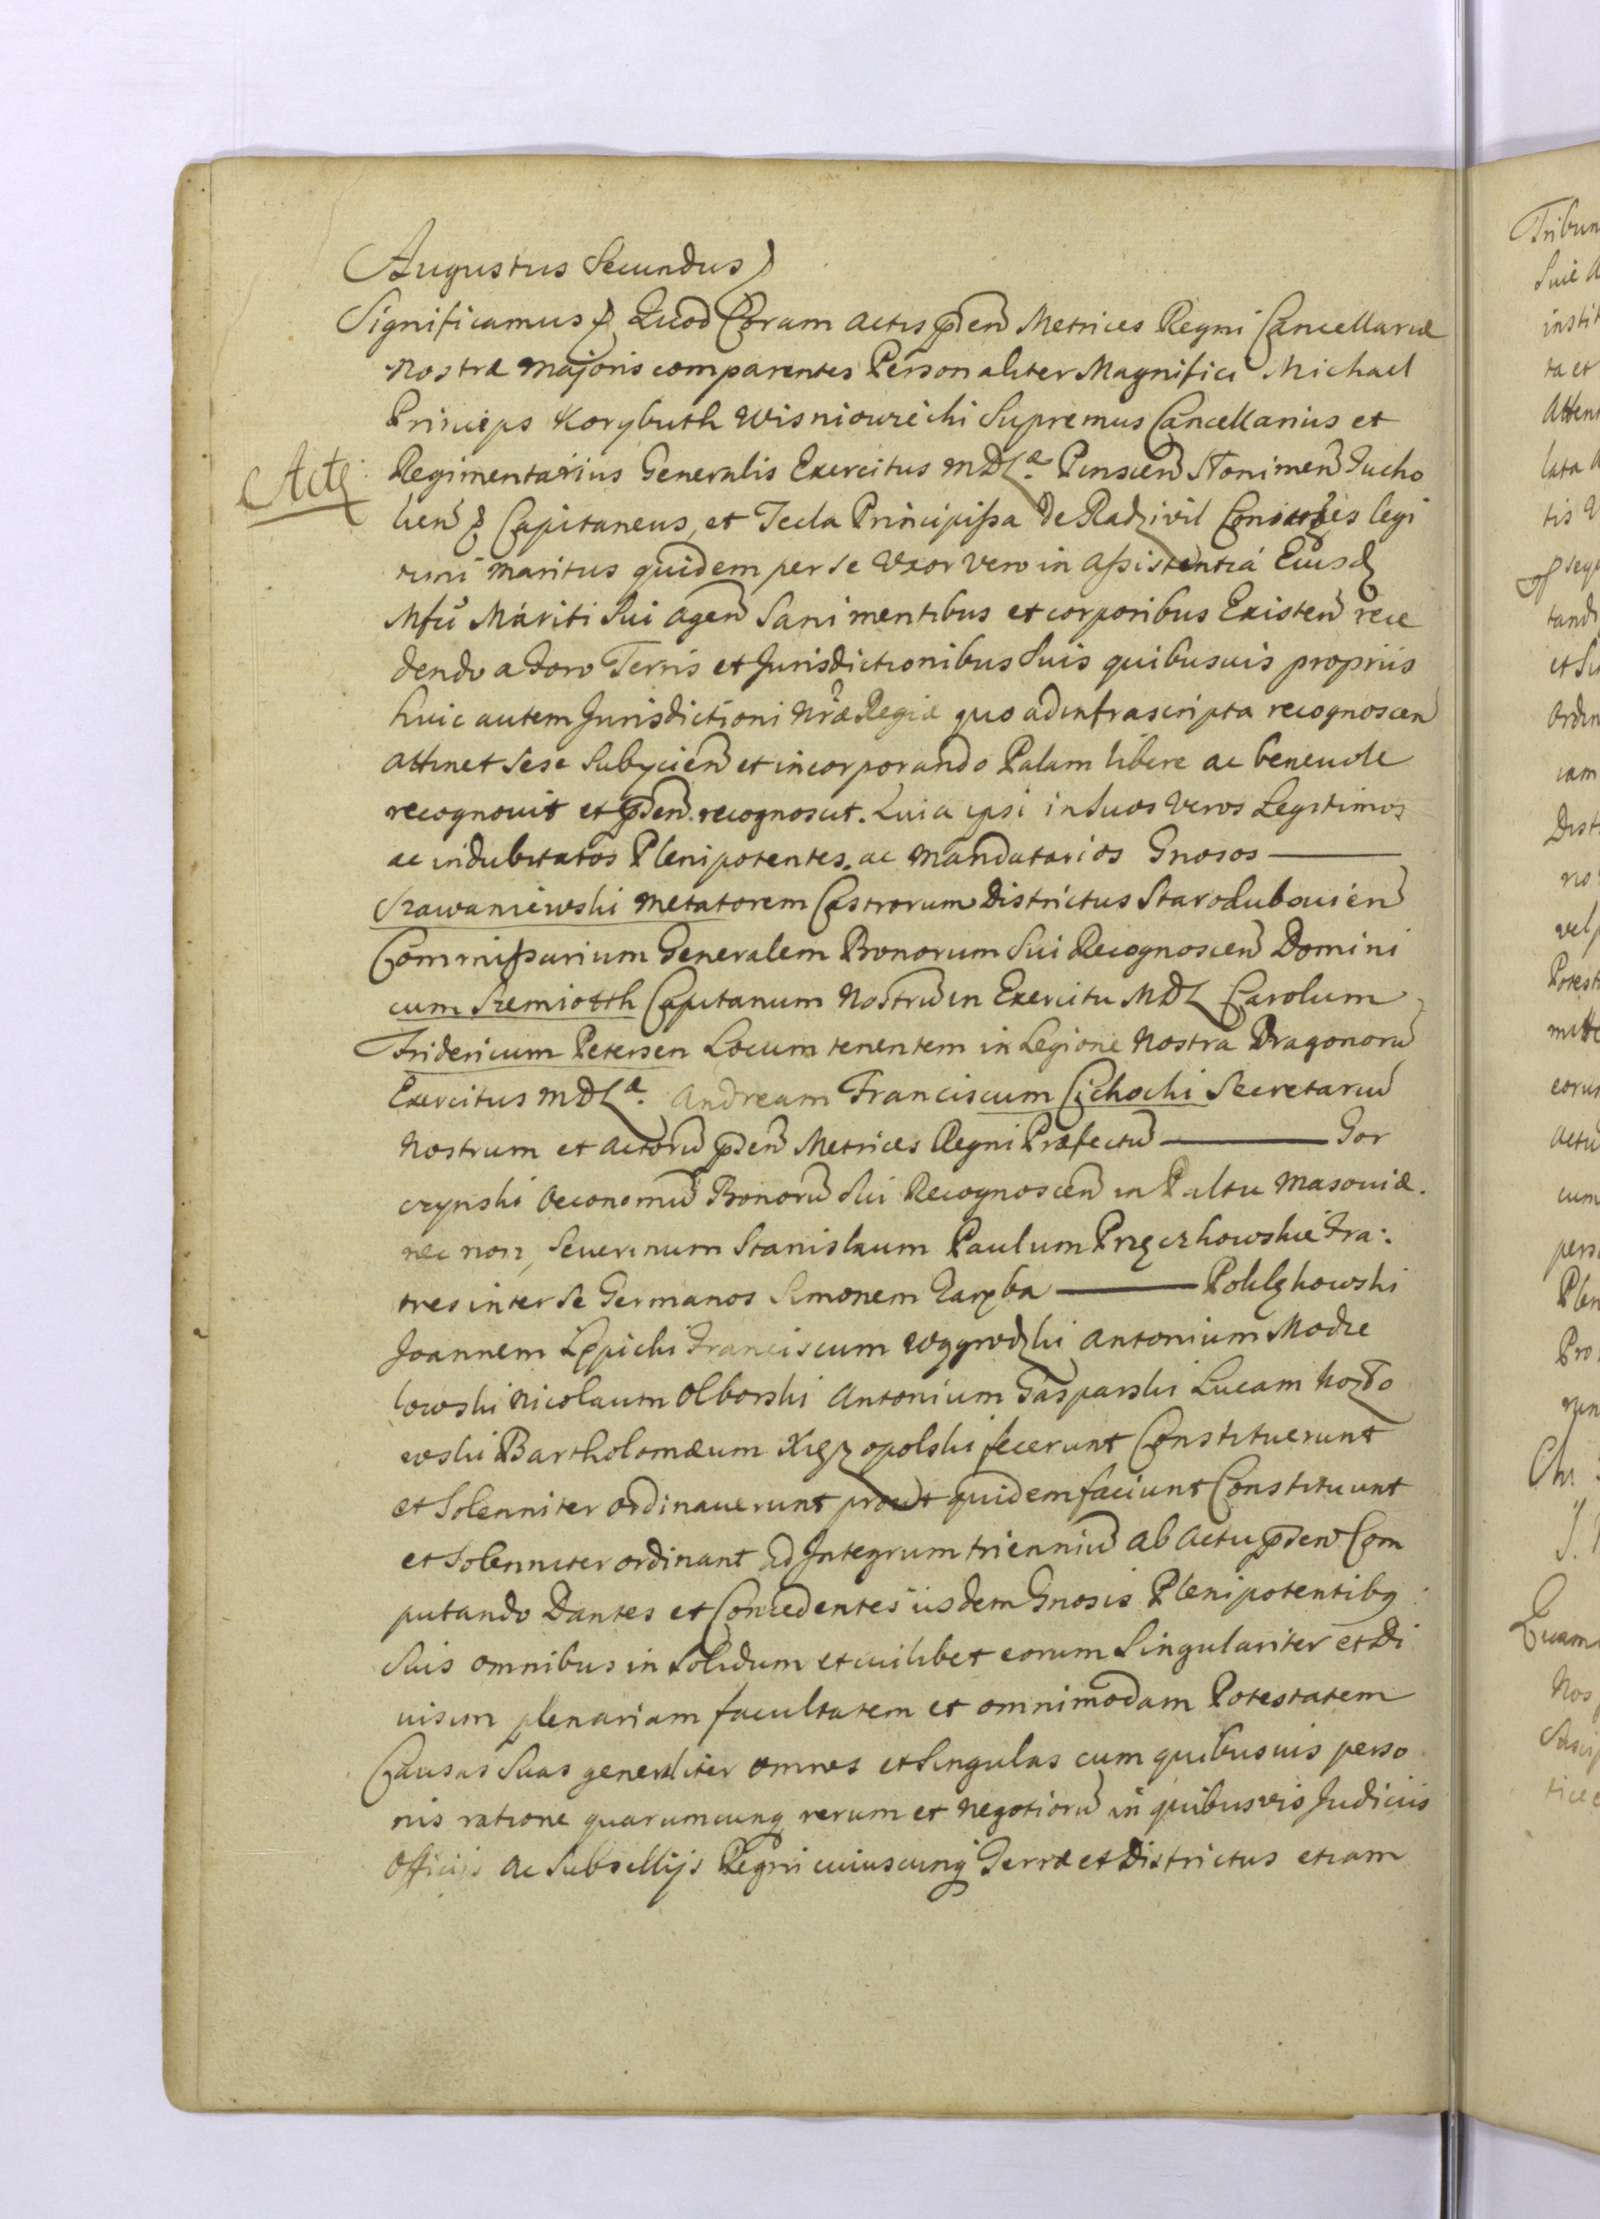 Augustus Secundus
Significamus Quod Coram Actis pñen Metrices Regni Cancellariæ
nostræ majoris comparentes Personaliter Magnifici Michael
Princeps Korybuth Wisniowiecki Supremus Cancellarius et
Acte Regimentarius Generalis Exercitus MDLæ Pinscen Stonimen Tucho
lien Capitaneus, et Tecla Principissa de Radzivil Consortes legi
timi maritus quidem per se Uxor vero in assistentiá Eiusd
Mfci Mariti Sui agen Sani mentibus et corporibus Existen rece
dendo a Foro Terris et Jurisdictionibus Suis quibusvis propriis
huic autem Jurisdictioni Nræ Regiæ quo ad infrascripta recognoscen
attinet sese Subycien et incorporando Palam libere ac benevole
recognovit et pñen recognoscit. Quia ipsi in Suos Veros Legitimos
ac indubitatos Plenipotentes ac Mandatarios Gnosos ———
Szawaniewski Metatorem Castrorum Districtus Starodubovien
Commissarium Generalem Bonorum Sui Recognoscen Domini
cum Szemiotth Capitanum Nostru in Exercitu MDL Carolum
Fridericum Petersen Locum tenentem in Legione Nostra Dragonoru
Exercitus MDLæ Andream Franciscum Cichocki Secretariu
Nostrum et Actoru pñen Metrices Regni Præfectu ——— Gor
czynski Oeconomu Bonoru Sui Recognoscen in Paltu Masoviæ.
nec non, Severinum Stanislaum Paulum Przeczkowskie Fra:
tres inter se Germanos Simonem Zaręba ——— Polilzkowski
Joannem Lępicki Franciscum Wygrodzki Antonium Modze
lowski Nicolaum Olborski Antonium Gasparski Lucam Nozdo
wski Bartholomæum Xięzopolski fecerunt Constituerunt
et Solenniter ordinaverunt prout quidem faciunt Constituunt
et Solenniter ordinant ad Integrum trienniu ab actu pñen Com
putando Dantes et Concedentes iisdem Gnosis Plenipotentibq
Suis omnibus in Solidum et cuilibet eorum Singulariter et Di
visim plenariam facultatem et omnimodam Potestatem
Causas Suas generaliter omnes et Singulas cum quibusvis perso
nis ratione quarumcunq rerum et negotioru in quibusvis Judiciis
Officijs ac Subsellijs Regni cuiuscunq Terræ et Districtus etiam